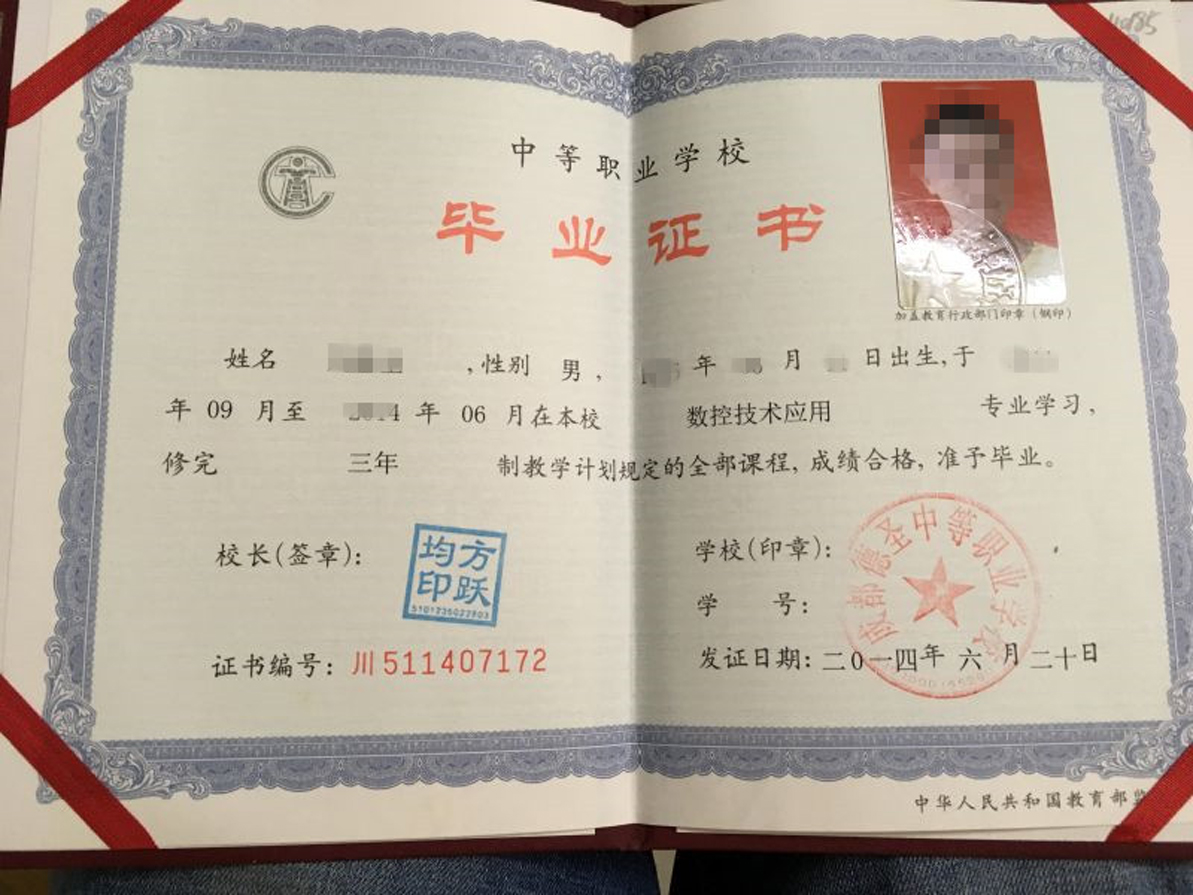 中等职业学校
毕业证书
加盖教育行政部门印章（钢印）
姓名 ，性别 男， 年 月 日出生，于
年 09 月至 年 06 月在本校 数控技术应用 专业学习，
修完 三年 制教学计划规定的全部课程，成绩合格，准予毕业。
校长（签章）：
均方
印跃
学校（印章）：
成都德圣中等职业学校
学 号：
证书编号：川511407172
发证日期：二0一四年 六 月 二十日
中华人民共和国教育部监